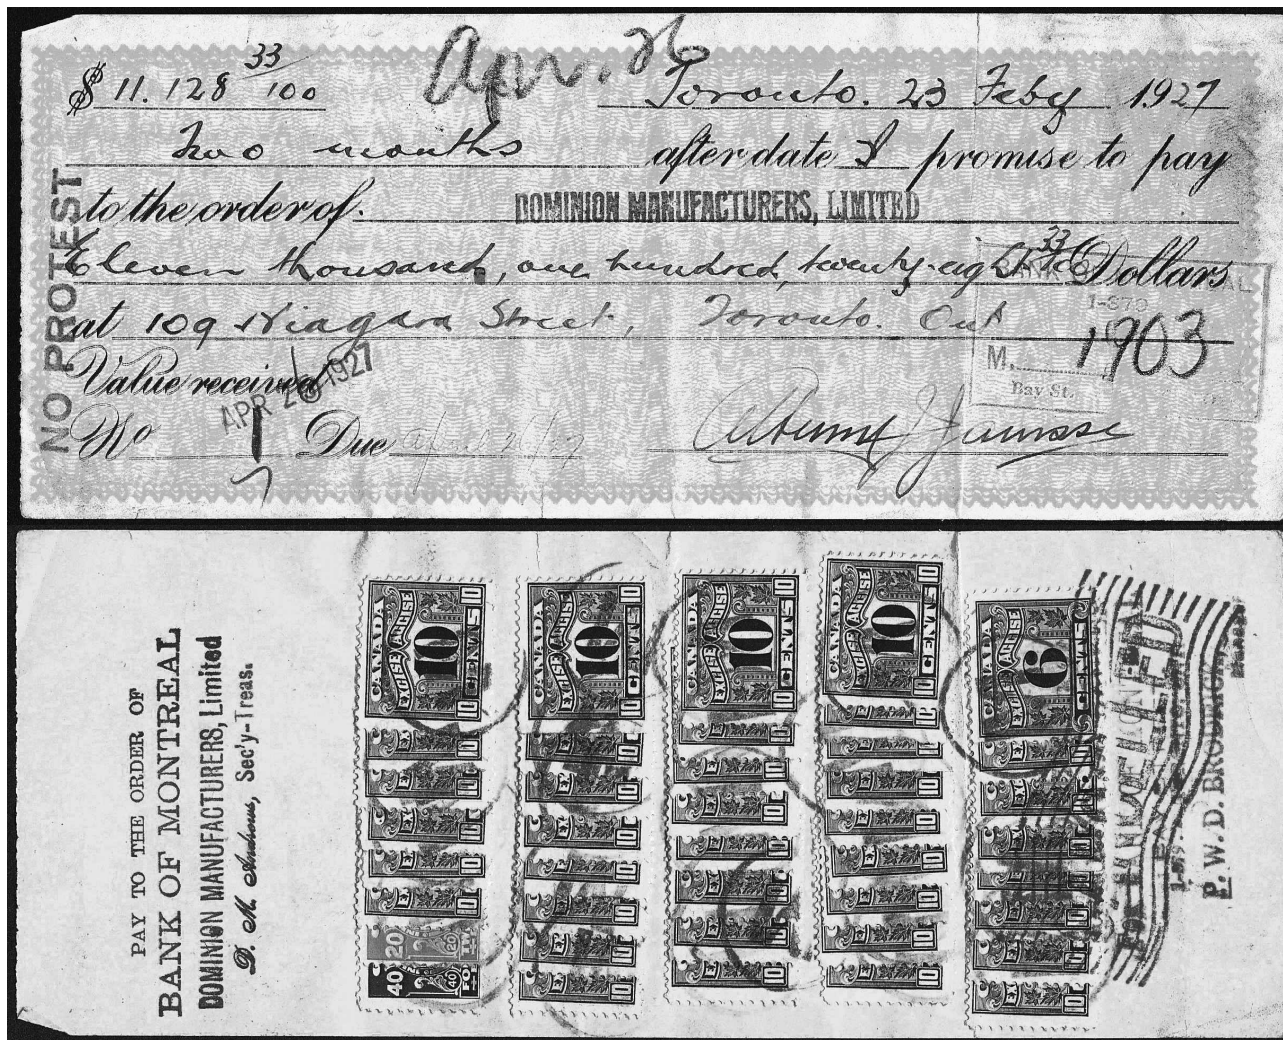 Apr. 26
$ 11.128 33/100 Toronto. 23 Feby 1927
Two months after date I promise to pay
to the order of DOMINION MANUFACTURERS, LIMITED
Eleven thousand, one hundred, twenty-eight 33/100 Dollars
at 109 Niagara Street, Toronto. Ont
1-373
M. 1903
Bay St.
Value received
APR 26 1927
No 1 Due April 26/27
NO PROTEST
PAY TO THE ORDER OF
BANK OF MONTREAL
DOMINION MANUFACTURERS, Limited
Sec'y-Treas.
CANADA
EXCISE ACCISE
10
10 CENTS 10
CANADA
EXCISE ACCISE
10
10 CENTS 10
CANADA
EXCISE ACCISE
10
10 CENTS 10
CANADA
EXCISE ACCISE
10
10 CENTS 10
CANADA
EXCISE ACCISE
6
CENTS
20
20
40
40
CANCELLED
P. W. D. BRODRICK